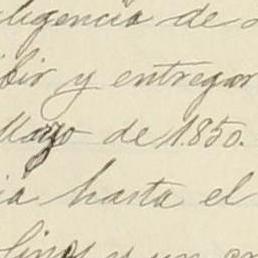 ligencia de
ibir y entregar
Mayo de 1.850.
ia hasta el
y un